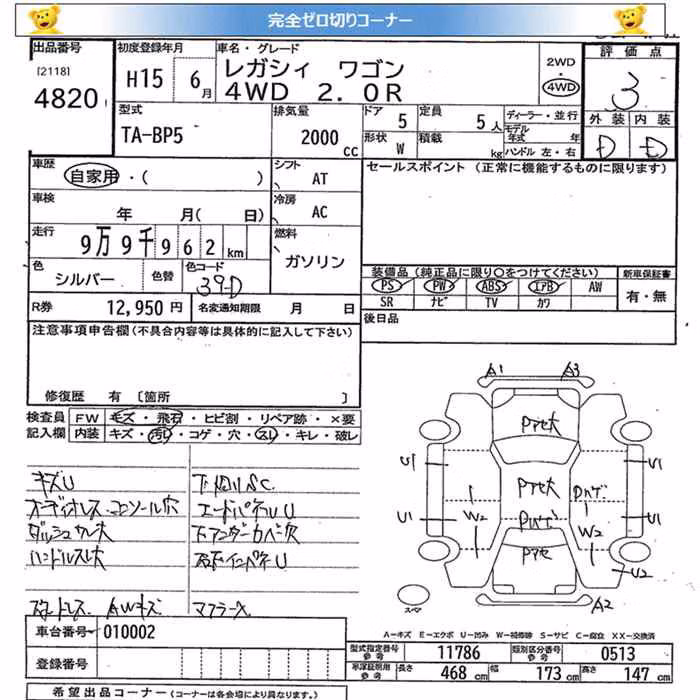 完全ゼロ切りコーナー
出品番号
[2118]
4820
初度登録年月
H15 6月
車名・グレード
レガシィ ワゴン
4WD 2.0R
2WD
・
4WD
評価点
3
外装 内装
D D
型式
TA-BP5
排気量
2000 cc
ドア
5
定員
5人
形状
W
積載
kg
ディーラー・並行
モデル年式 年
ハンドル 左・右
車歴
自家用・( )
シフト
AT
セールスポイント (正常に機能するものに限ります)
車検
年 月( 日)
冷房
AC
走行
9万9千962km
燃料
ガソリン
色
シルバー
色替
色コード
39-D
装備品(純正品に限り○をつけてください)
PS PW ABS エアB AW
SR ナビ TV カワ
新車保証書
有・無
R券
12,950円
名変通知期限 月 日
後日品
注意事項申告欄(不具合内容等は具体的に記入して下さい)
修復歴 有 [箇所 ]
検査員
記入欄
FW キズ・飛石・ヒビ割・リペア跡・×要
内装 キズ・汚れ・コゲ・穴・スレ・キレ・破レ
キズU
オーディオレス.コンソール穴
ダッシュ大
ハンドルスレ大
AWキズ
下回りSC
エードパネルU
下アンダーカバー欠
インパネU
マフラー
A1 A3
Pアセ大
U1 U1
Pアセ大 Pハゲ
Pハゲ
U1 W2 W2 U1
Pアセ
U2
A2
スペア
A-キズ E-エクボ U-凹み W-補修跡 S-サビ C-腐食 XX-交換済
車台番号 010002
登録番号
型式指定番号 参考 11786
類別区分番号 参考 0513
車庫証明用 参考 長さ 468 cm 幅 173 cm 高さ 147 cm
希望出品コーナー (コーナーは各会場により異なります。)